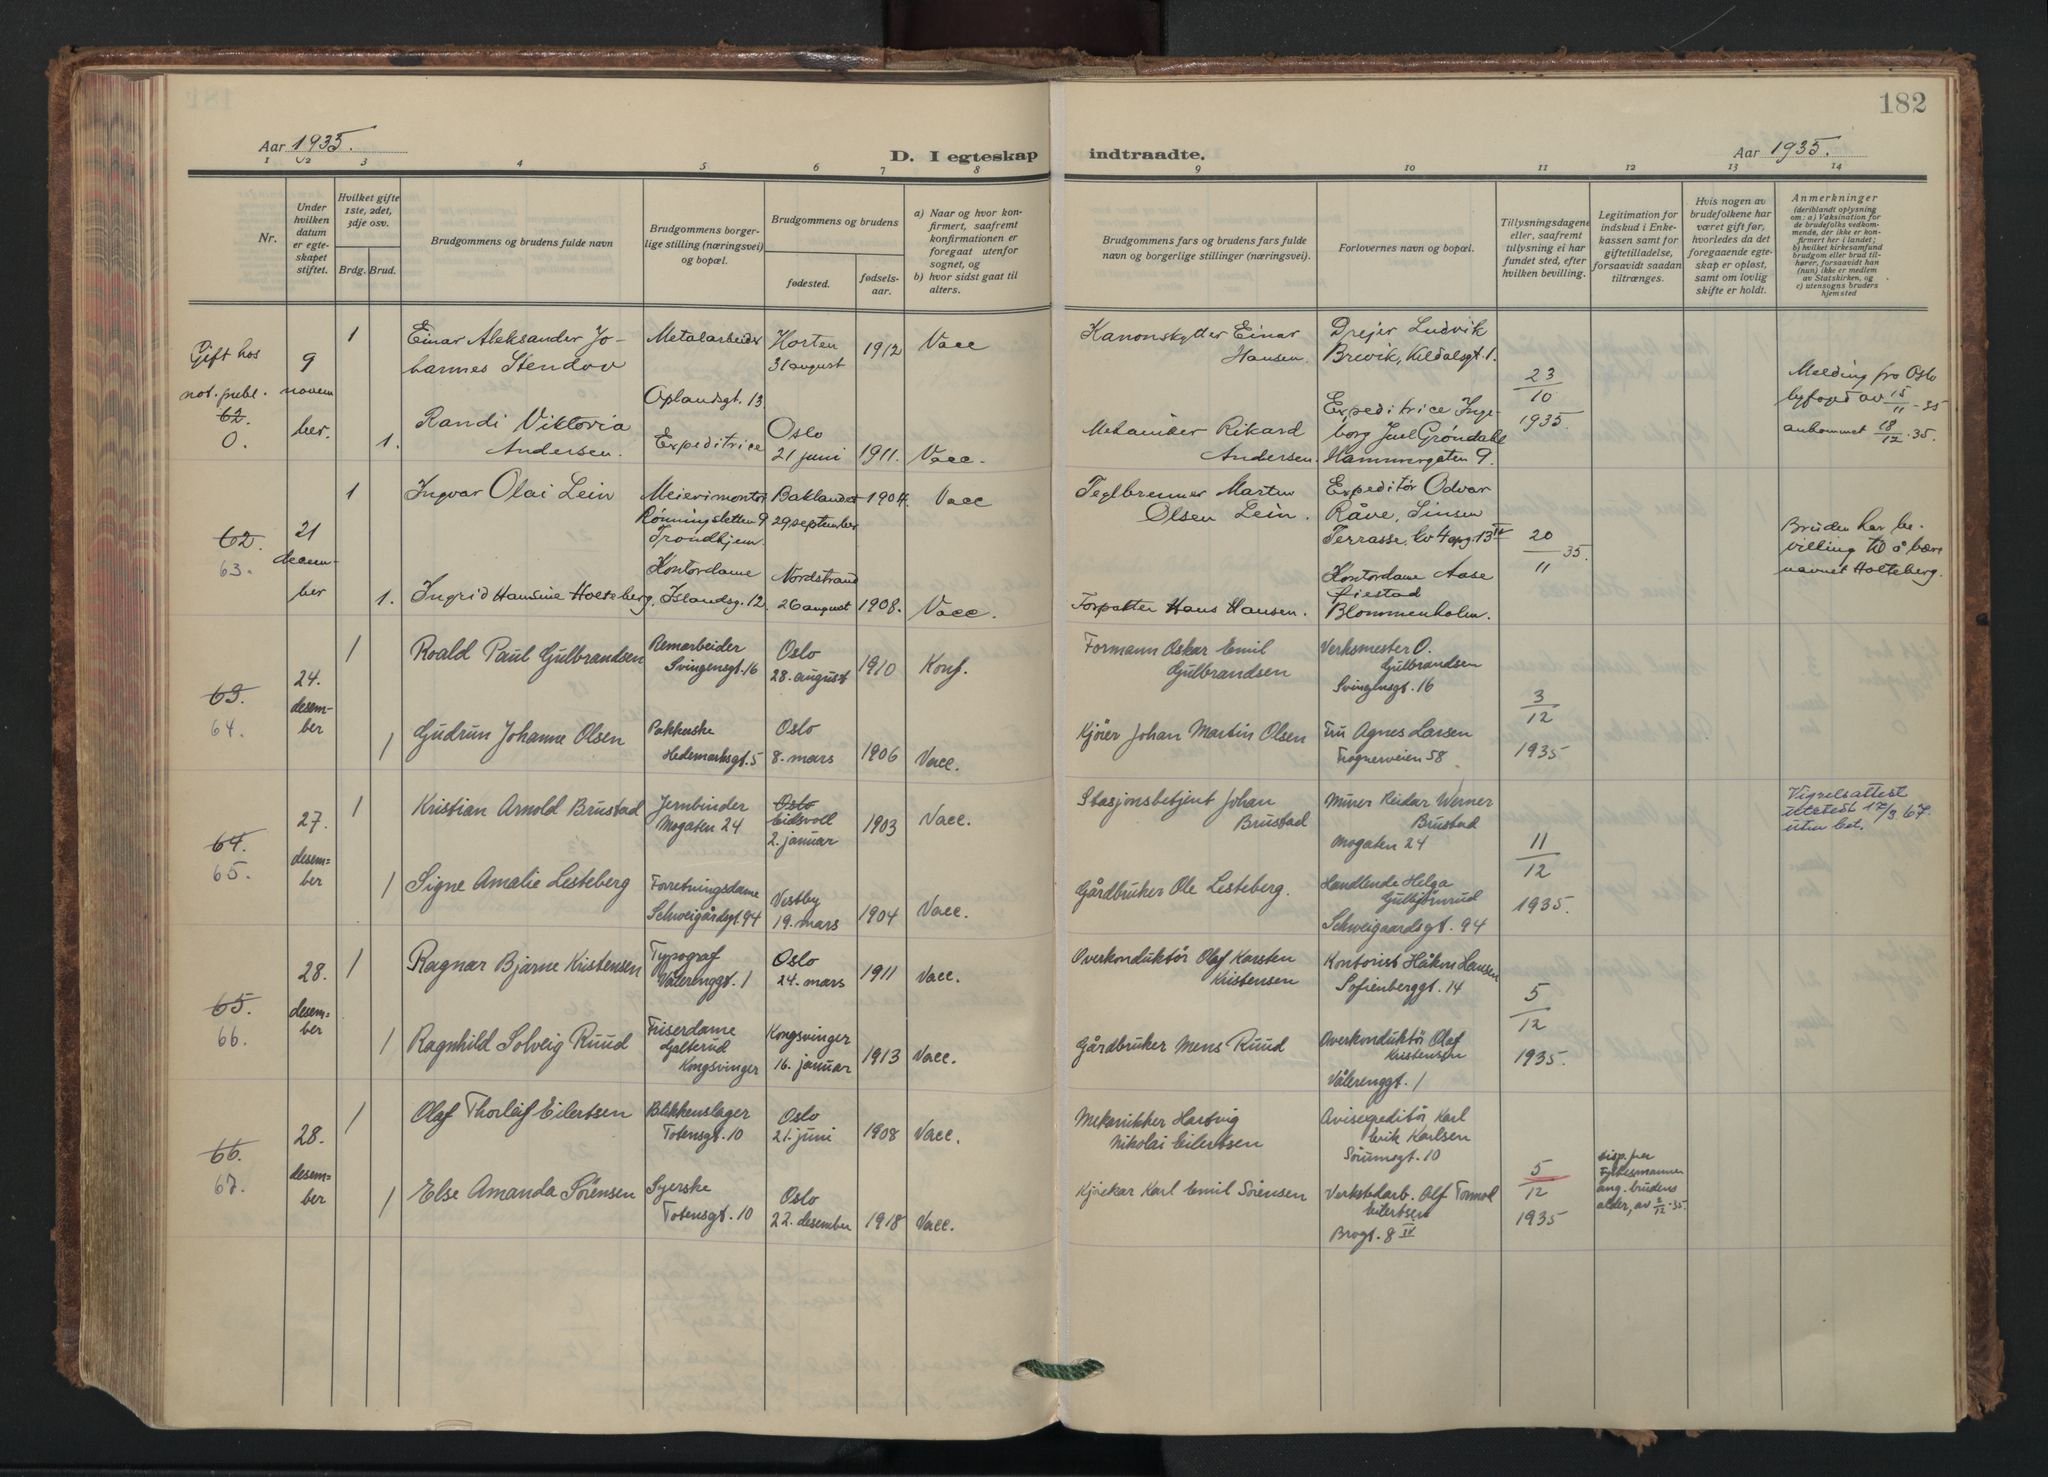 182
Aar 1935.
D. I egteskap
indtraadte.
Aar 1935.
1 2 3 4 5 6 7 8
9 10 11 12 13 14
Nr.
Under hvilken datum er egteskapet stiftet.
Hvilket gifte 1ste, 2det, 3dje osv.
Brdg. Brud.
Brudgommens og brudens fulde navn
Brudgommens borgerlige stilling (næringsvei) og bopæl.
Brudgommens og brudens
fødested.
fødselsaar.
a) Naar og hvor konfirmert, saafremt konfirmationen er foregaat utenfor sognet, og
b) hvor sidst gaat til alters.
Brudgommens fars og brudens fars fulde navn og borgerlige stillinger (næringsvei).
Forlovernes navn og bopæl.
Tillysningsdagene eller, saafremt tillysning ei har fundet sted, efter hvilken bevilling.
Legitimation for indskud i Enkekassen samt for giftetilladelse, forsaavidt saadan tiltrænges.
Hvis nogen av brudefolkene har været gift før, hvorledes da det foregaaende egteskap er opløst, samt om lovlig skifte er holdt.
Anmerkninger
(deriblandt oplysning om: a) Vaksination for de brudefolks vedkommende, der ikke er konfirmert her i landet; b) hvilket kirkesamfund brudgom eller brud tilhører, forsaavidt han (hun) ikke er medlem av Statskirken, og c) utensogns bruders hjemsted
Gift hos
not. publ.
62.
0.
9
novem
ber.
1
Einar Aleksander Jo-
hannes Stendov
Metalarbeider
Oplandsgt. 13.
Horten
31 august
1912
Vacc
Kanonskytter Einar
Hansen.
Drejer Ludvik
Brevik, Kildalsgt. 1.
1.
Randi Viktoria
Andersen.
Expeditrice
Oslo
21 juni
1911.
Vacc.
Mekaniker Rikard
Andersen.
Expeditrice Inge-
borg Juel Grøndahl
Hammergaten 9.
23
10
1935.
Melding fra Oslo
byfoged av 15/11 - 35
ankommet 18/12 - 35.
62.
63.
21
decem-
ber
1
Ingvar Olai Lein
Meierimontør
Rønningsletten 9
Trondhjem.
Baklandet
29 september
1904.
Vacc
Teglbrenner Martin
Olsen Lein.
Expeditør Odvar
Råve, Sinsen
Terrasse, kv 4 opg. 13 IV
1.
Ingrid Hansine Holteberg,
Kontordame
Islandsg. 12.
Nordstrand
26 august
1908.
Vacc.
Forpakter Hans Hansen.
Kontordame Aase
Fiestad
Blommenholm.
20
11
35.
Bruden har be-
villing til å bære
navnet Holteberg.
63.
64.
24.
desem-
ber
1
Roald Paul Gulbrandsen
Remarbeider
Svingensgt. 16
Oslo
28. august
1910
Konf.
Formann Oskar Emil
Gulbrandsen
Verksmester O.
Gulbrandsen
Svingensgt. 16
1
Gudrun Johanne Olsen
Pakkerske
Hedemarksgt. 5
Oslo
8. mars
1906
Vacc.
Kjører Johan Martin Olsen
Fru Agnes Larsen
Frognerveien 58
3
12
1935
64.
65.
27.
desem-
ber
1
Kristian Arnold Brustad
Jernbinder
Mogaten 24
Oslo
Eidsvoll
2. januar
1903
Vacc.
Stasjonsbetjent Johan
Brustad
Murer Reidar Werner
Brustad
Mogaten 24
1
Signe Amalie Lesteberg
Forretningsdame
Schweigårdsgt. 94
Vestby
19. mars
1904
Vacc.
Gårdbruker Ole Lesteberg.
Handlende Helga
Gulbjørnrud
Schweigaardsgt. 94
11
12
1935.
Vigselsattest
utstedt 17/3 67.
uten bet.
65.
66.
28.
desem-
ber
1
Ragnar Bjarne Kristensen
Typograf
Vålerenggt. 1
Oslo
24. mars
1911
Vacc.
Overkonduktør Olaf Karsten
Kristensen
Kontorist Håkon Hansen
Sofienberggt. 14
1
Ragnhild Solveig Ruud
Friserdame
Galterud
Kongsvinger
Kongsvinger
16. januar
1913
Vacc.
Gårdbruker Mens Ruud
Overkonduktör Olaf
Kristensen
Vålerenggt. 1
5
12
1935.
66.
67.
28.
desem-
ber
1
Olaf Thorleif Eilertsen
Blikkenslager
Totensgt. 10
Oslo
21. juni
1908
Vacc.
Mekanikker Hartvig
Nikolai Eilertsen
Avisexpeditör Karl
Erik Karlsen
Sörumsgt. 10
1
Else Amanda Sörensen
Syerske
Totensgt. 10
Oslo
22. desember
1918
Vacc.
Kjörekar Karl Emil Sörensen
Verkstedarb. Alf Tormod
Eilertsen
Brogt. 8 IV
5
12
1935
disp. fra
fylkesmannen
ang. brudens
alder, av 2/12 - 35.